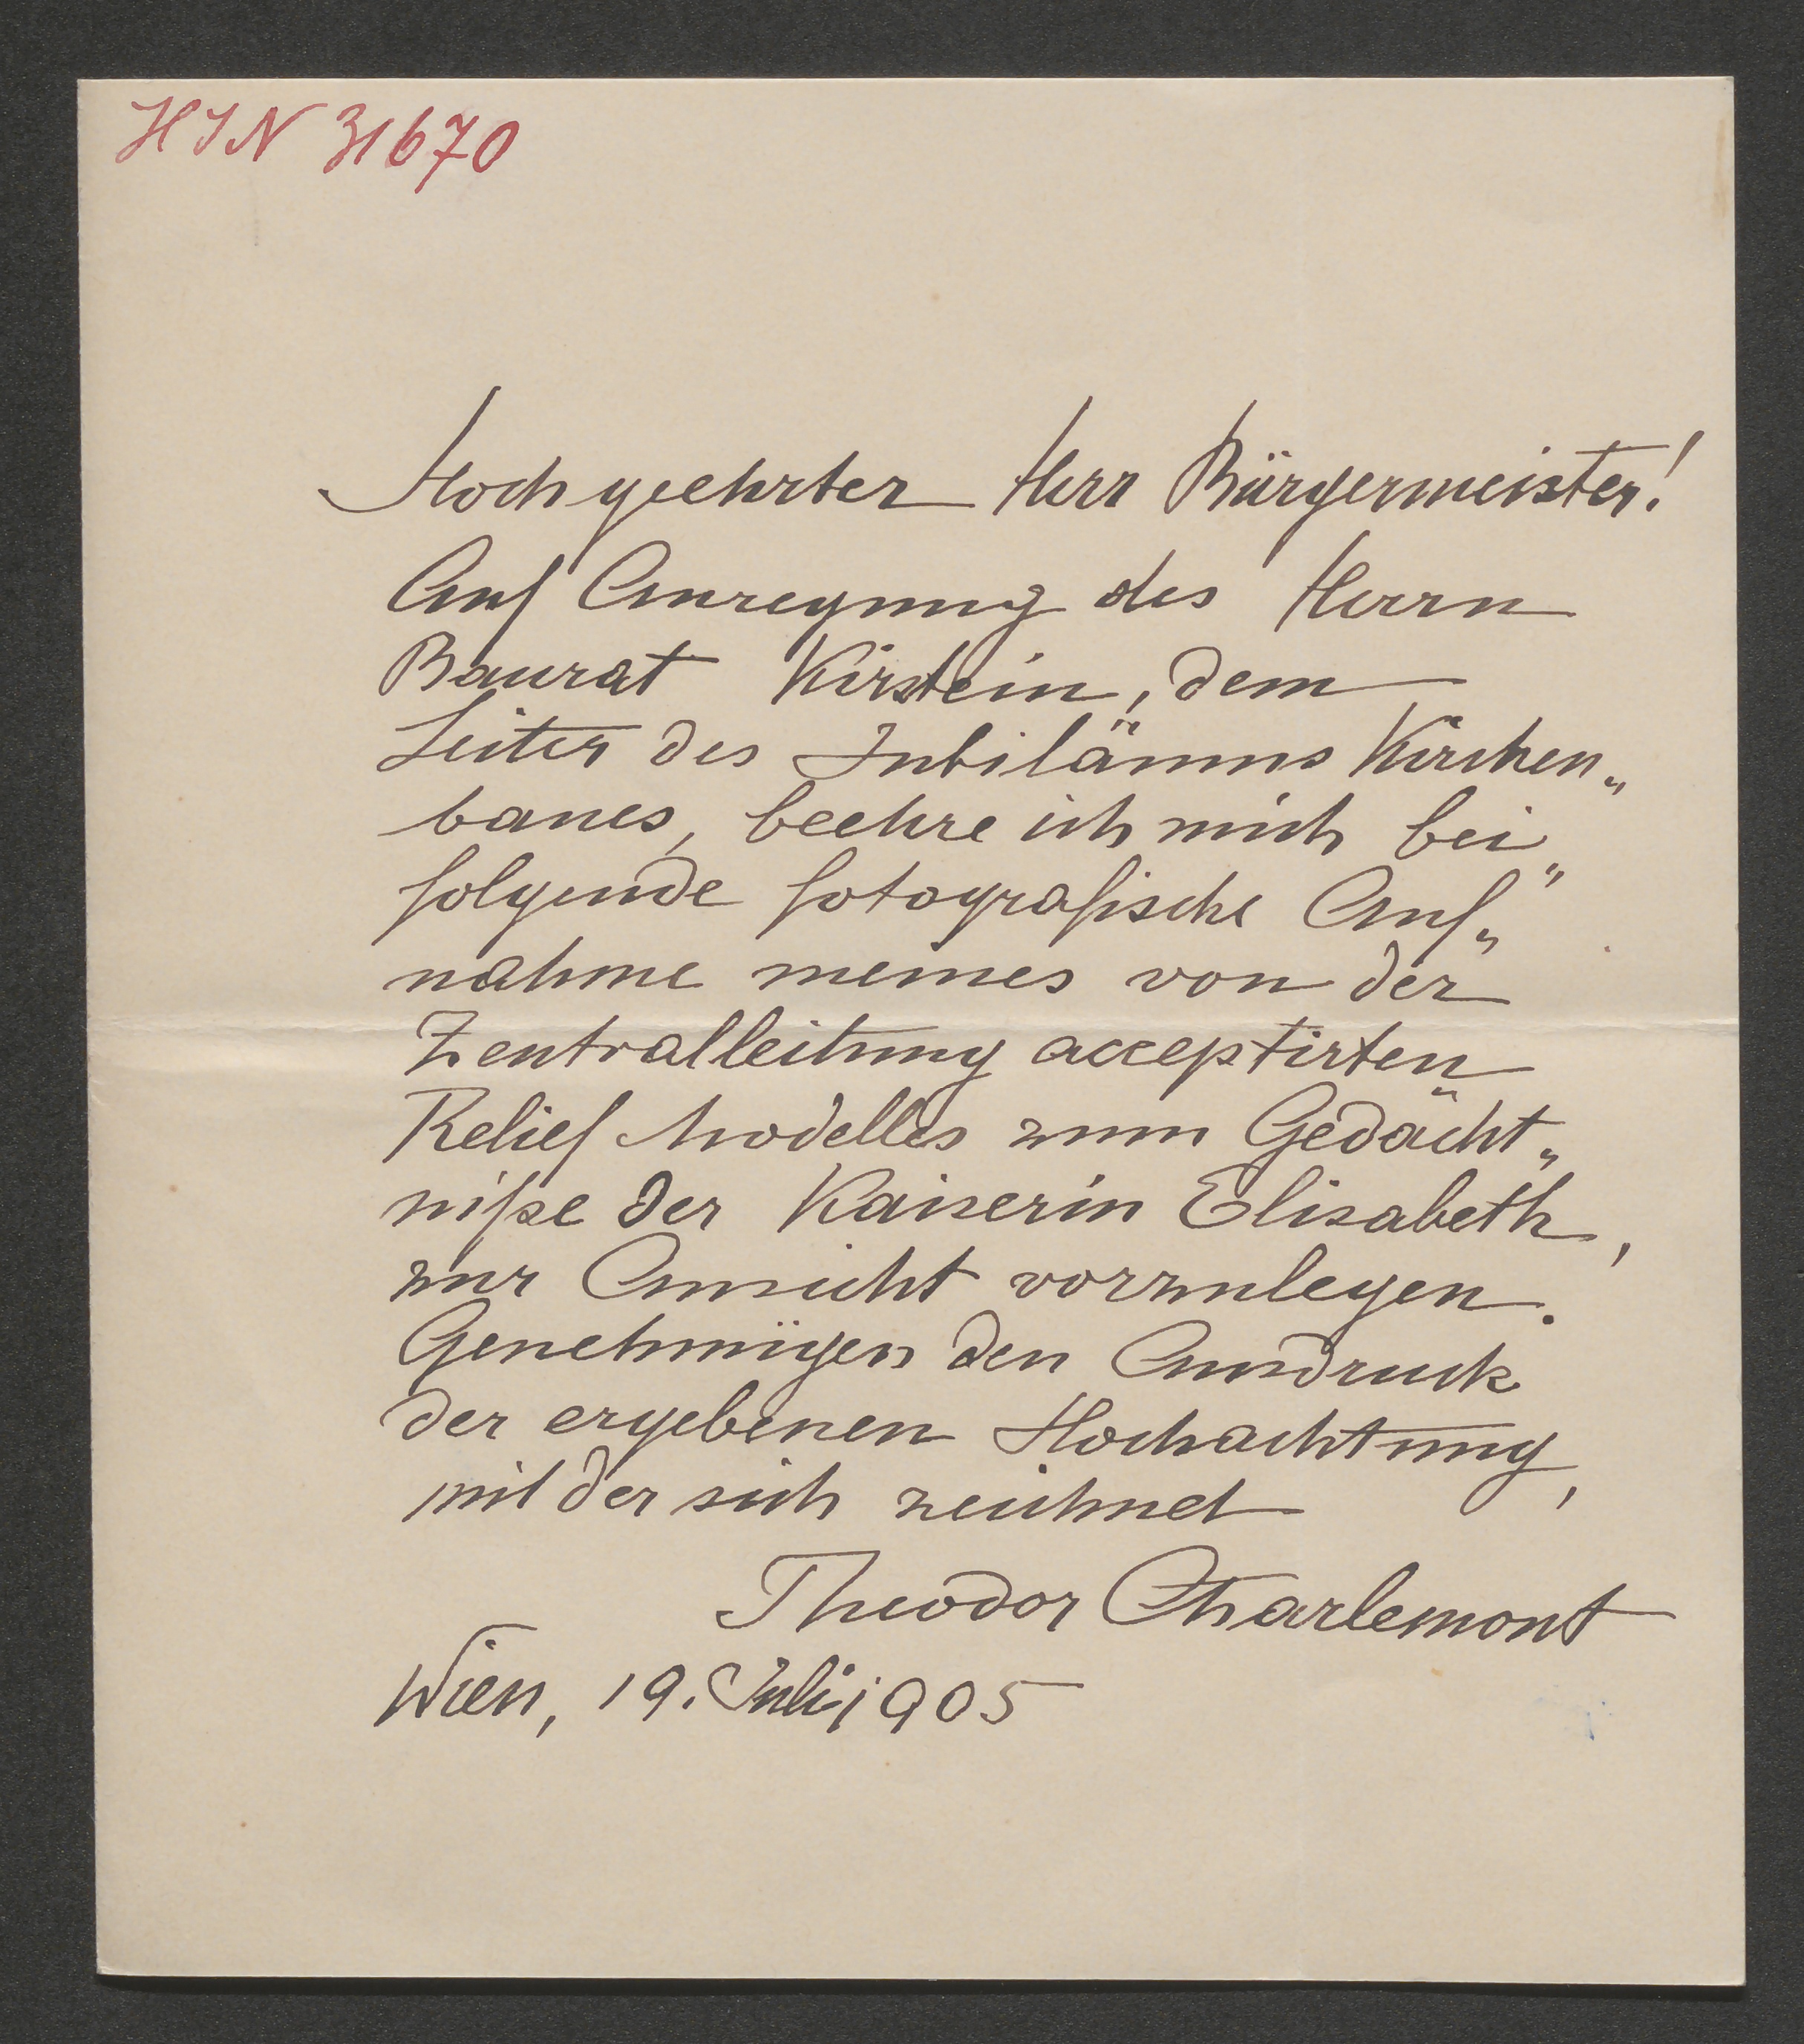 HIN 31670
Hochgeehrter Herr Bürgermeister!
Auf Anregung des Herrn
Baurat Kirstein, dem
Leiter des Jubiläums Kirchen„
baues, beehre ich mich bei„
folgende fotografische Auf„
nahme meines von der
Zentralleitung acceptirten
Relief Modelles zum Gedächt„
niße der Kaiserin Elisabeth,
zur Ansicht vorzulegen.
Genehmigen den Ausdruck
der ergebenen Hochachtung,
mit der sich zeichnet
Theodor Charlemont
Wien, 19. Juli 1905